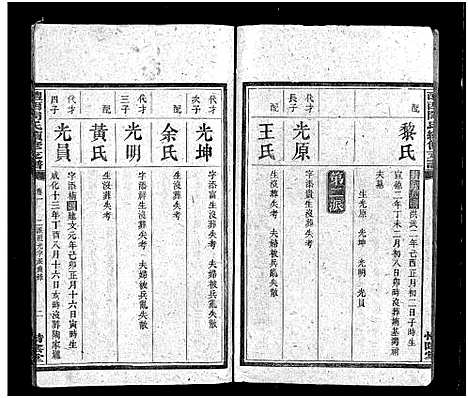 配
黎氏
洪武二年己酉正月初二日子時生
宣德二年丁未二月初八日卯時沒葬
夫墓
生光原 光坤 光明 光員
第二派
代才
長子
光原
字添貴生沒葬失考 夫婦被兵亂失散
配
王氏
生沒葬失考
代才
次子
光坤
字添富生沒葬失考 夫婦被兵亂失散
配
余氏
生沒葬失考
代才
三子
光明
生沒葬失考 夫婦被兵亂失散
配
黃氏
生沒葬失考
代才
四子
光員
建文元年己卯正月十六日寅時生
成化十三年丁酉八月十六日亥時沒葬陶家